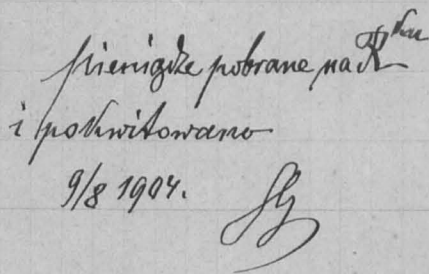 pieniądze pobrane na R<sup>ku</sup>
i pokwitowano
9/8 1904.